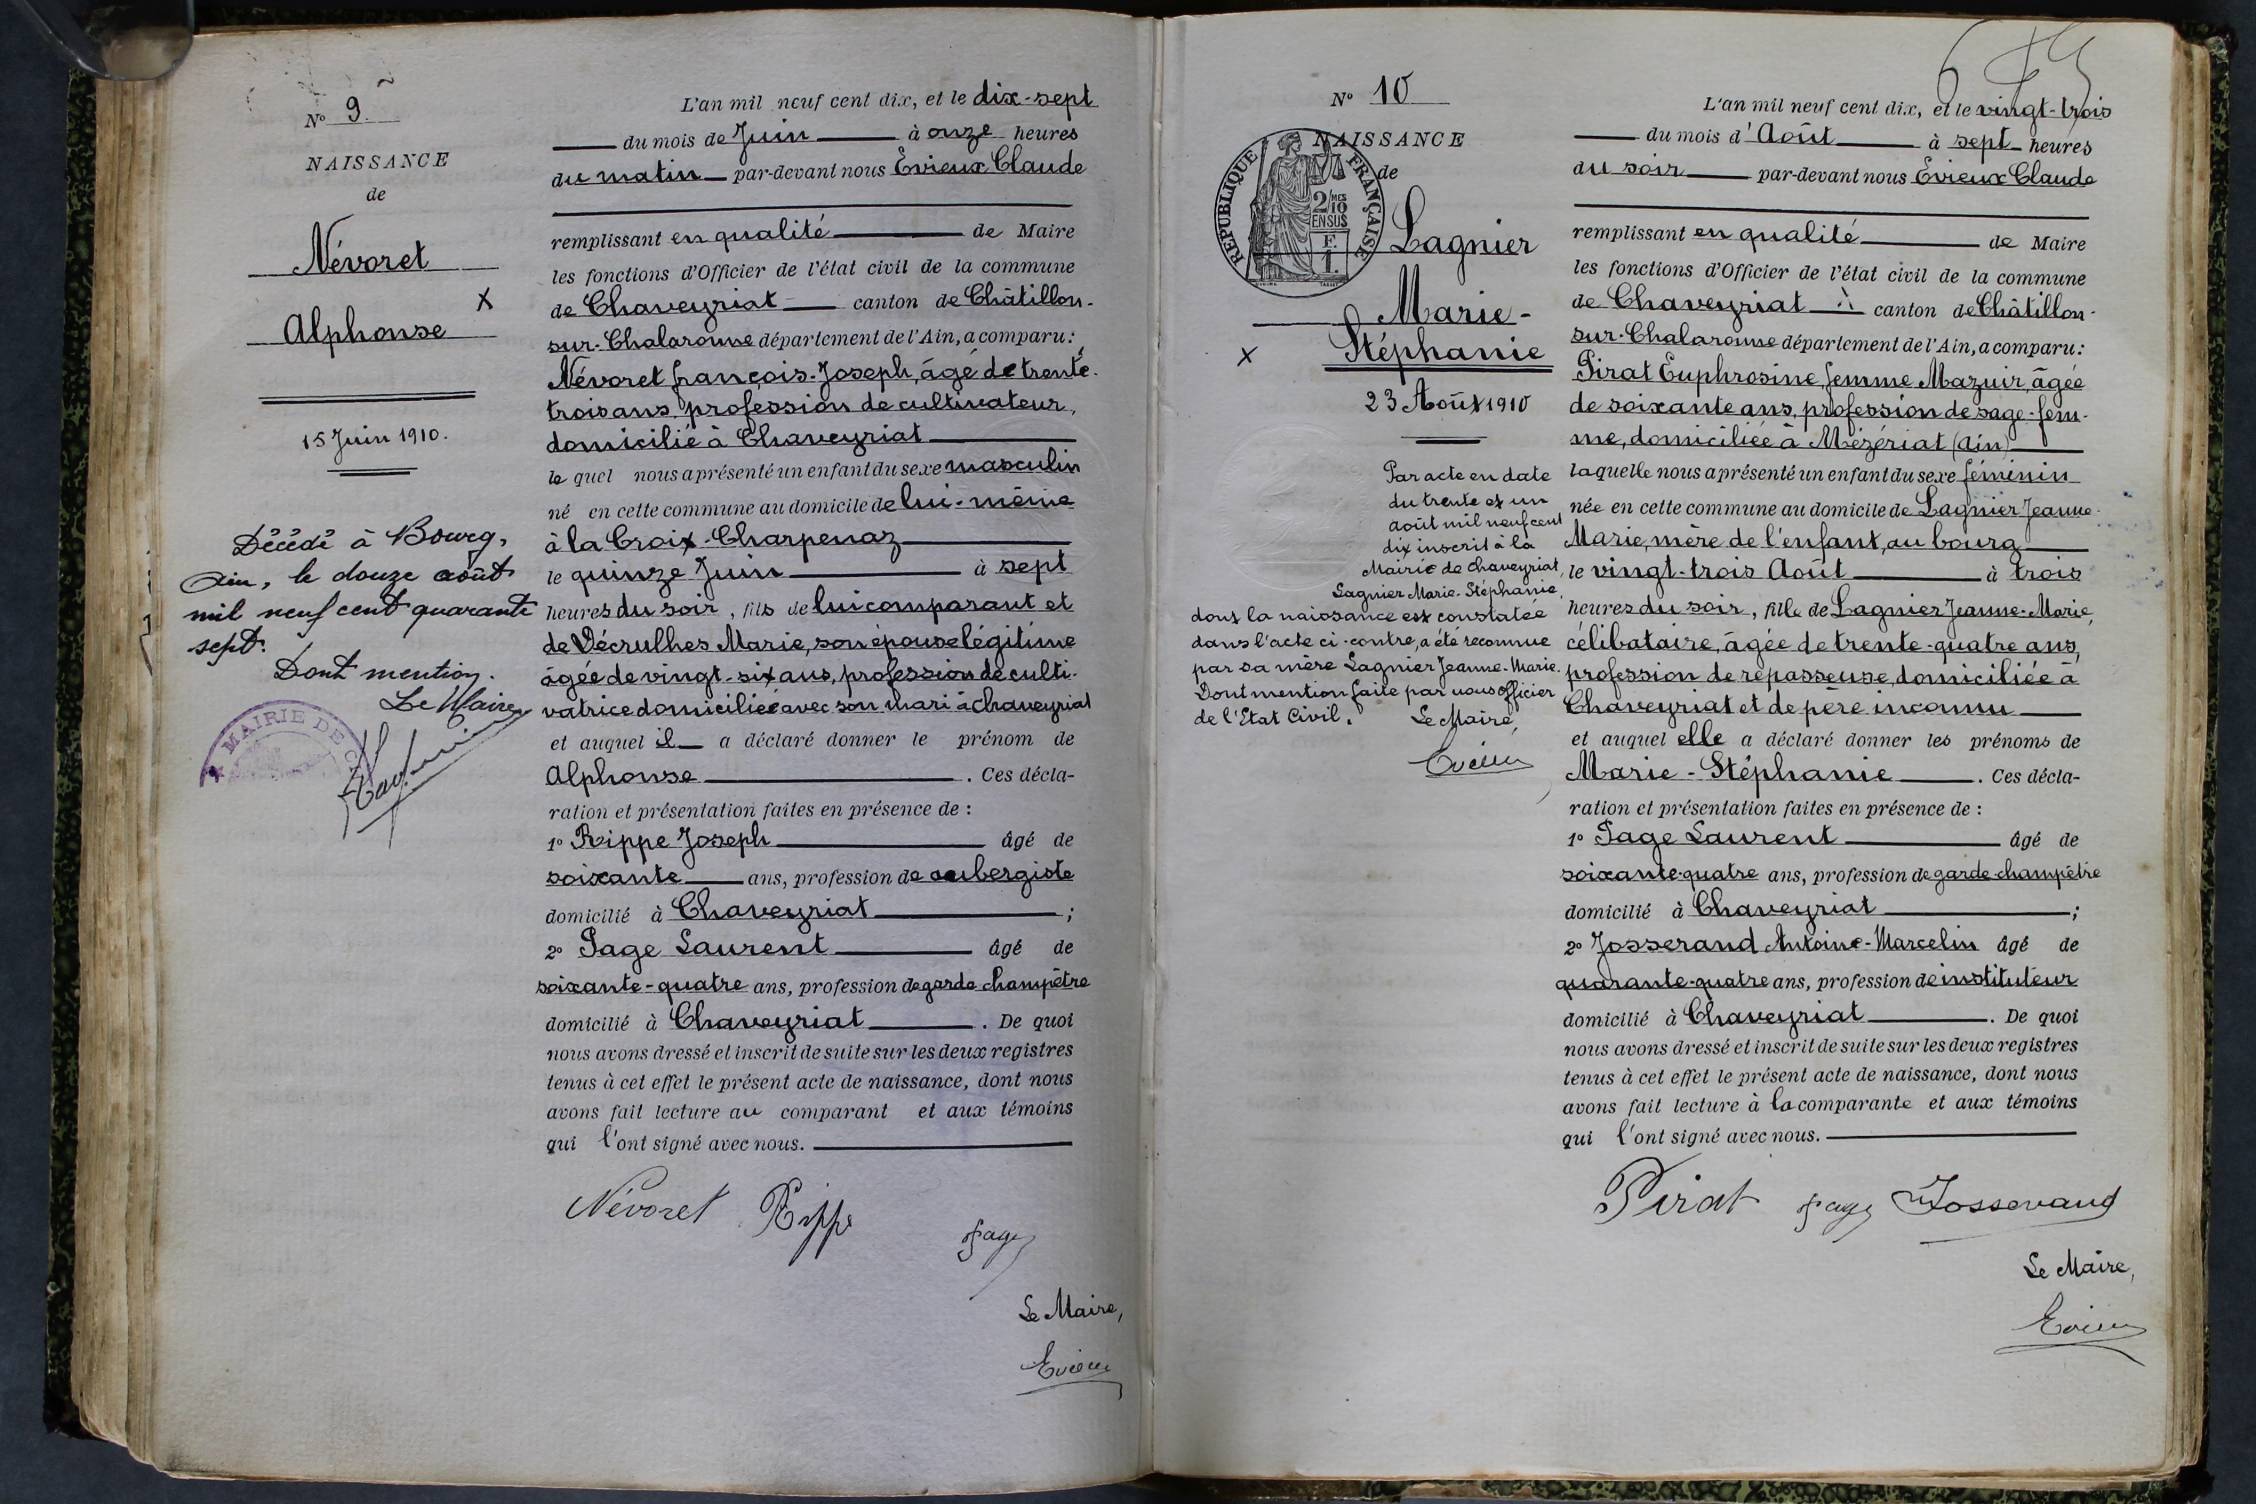 Nº 9.
NAISSANCE
de
Névoret
Alphonse
X
15 Juin 1910.
Décédé à Bourg,
Ain, le douze août
mil neuf cent quarante
sept.
Dont mention.
Le Maire,
MAIRIE DE C
L'an mil neuf cent dix, et le dix-sept
du mois de Juin à onze heures
du matin par-devant nous Évieux Claude
remplissant en qualité de Maire
les fonctions d'Officier de l'état civil de la commune
de Chaveyriat canton de Châtillon-
sur-Chalaronne département de l'Ain, a comparu:
Névoret François-Joseph, âgé de trente-
trois ans, profession de cultivateur,
domicilié à Chaveyriat
le quel nous a présenté un enfant du sexe masculin
né en cette commune au domicile de lui-même
à la Croix-Charpenaz
le quinze Juin à sept
heures du soir, fils de lui comparant et
de Décrulhes Marie, son épouse légitime
âgée de vingt-six ans, profession de culti-
vatrice domiciliée avec son mari à Chaveyriat
et auquel il a déclaré donner le prénom de
Alphonse. Ces décla-
ration et présentation faites en présence de :
1º Rippe Joseph âgé de
soixante ans, profession de aubergiste
domicilié à Chaveyriat ;
2º Page Laurent âgé de
soixante-quatre ans, profession de garde champêtre
domicilié à Chaveyriat. De quoi
nous avons dressé et inscrit de suite sur les deux registres
tenus à cet effet le présent acte de naissance, dont nous
avons fait lecture au comparant et aux témoins
qui l'ont signé avec nous.
Névoret Rippe Page
Le Maire,
Évieux
Nº 10
NAISSANCE
de
RÉPUBLIQUE FRANÇAISE
2/10 MES
EN SUS
F.
1.
Lagnier
Marie-
Stéphanie
X
23 Août 1910
Par acte en date
du trente et un
août mil neuf cent
dix inscrit à la
Mairie de Chaveyriat,
Lagnier Marie-Stéphanie,
dont la naissance est constatée
dans l'acte ci-contre, a été reconnue
par sa mère Lagnier Jeanne-Marie.
Dont mention faite par nous officier
de l'Etat Civil.
Le Maire,
Évieux
L'an mil neuf cent dix, et le vingt-trois
du mois d'Août à sept heures
du soir par-devant nous Évieux Claude
remplissant en qualité de Maire
les fonctions d'Officier de l'état civil de la commune
de Chaveyriat canton de Châtillon-
sur-Chalaronne département de l'Ain, a comparu:
Pirat Euphrosine, femme Mazuir, âgée
de soixante ans, profession de sage-fem-
me, domiciliée à Mézériat (Ain)
laquelle nous a présenté un enfant du sexe féminin
née en cette commune au domicile de Lagnier Jeanne-
Marie, mère de l'enfant, au bourg
le vingt-trois Août à trois
heures du soir, fille de Lagnier Jeanne-Marie,
célibataire, âgée de trente-quatre ans,
profession de repasseuse, domiciliée à
Chaveyriat et de père inconnu
et auquel elle a déclaré donner les prénoms de
Marie-Stéphanie. Ces décla-
ration et présentation faites en présence de :
1º Page Laurent âgé de
soixante-quatre ans, profession de garde-champêtre
domicilié à Chaveyriat ;
2º Josserand Antoine-Marcelin âgé de
quarante-quatre ans, profession de instituteur
domicilié à Chaveyriat. De quoi
nous avons dressé et inscrit de suite sur les deux registres
tenus à cet effet le présent acte de naissance, dont nous
avons fait lecture à la comparante et aux témoins
qui l'ont signé avec nous.
Pirat Page Josserand
Le Maire,
Évieux